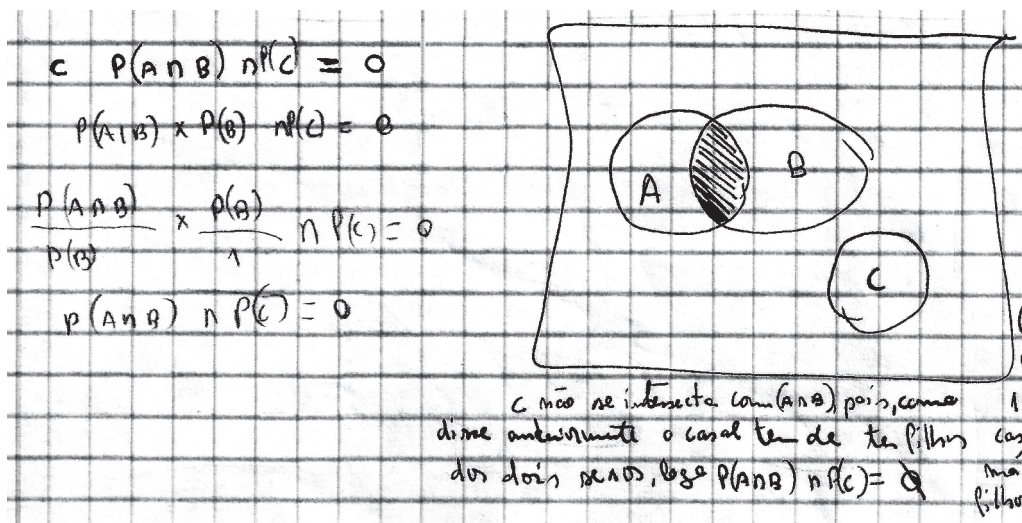 c P(A∩B) ∩P(C) = 0
P(A|B) × P(B) ∩P(C) = 0
P(A∩B) / P(B) × P(B) / 1 ∩ P(C) = 0
P(A∩B) ∩ P(C) = 0
A B
C
C não se intersecta com (A∩B) pois, como
disse anteriormente o casal tem de ter filhos
dos dois sexos, logo P(A∩B) ∩ P(C) = 0